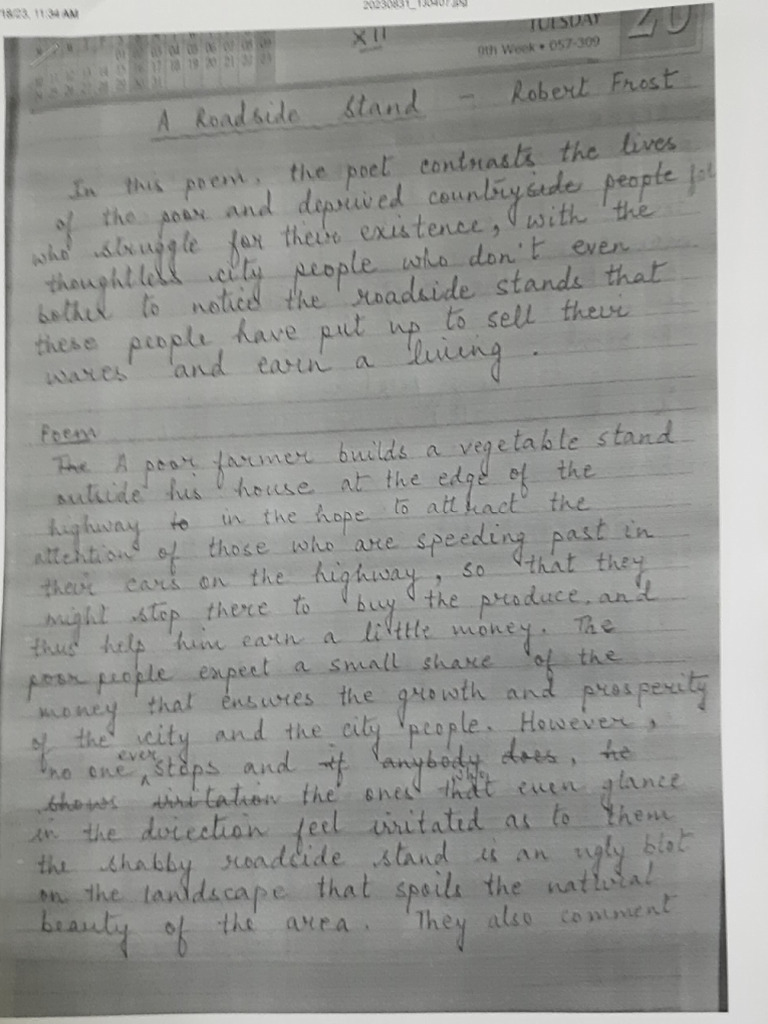 18/23, 11:34 AM
20230831_130407.jpg
XII
TUESDAY
9th Week • 057-309
20
A Roadside Stand - Robert Frost
In this poem, the poet contrasts the lives
of the poor and deprived countryside people
who struggle for their existence, with the
thoughtless city people who don't even
bother to notice the roadside stands that
these people have put up to sell their
wares and earn a living.
Poem
The A poor farmer builds a vegetable stand
outside his house at the edge of the
highway to in the hope to attract the
attention of those who are speeding past in
their cars on the highway, so that they
might stop there to buy the produce, and
thus help him earn a little money. The
poor people expect a small share of the
money that ensures the growth and prosperity
of the city and the city people. However,
no one ever stops and if anybody does, he
shows irritation the ones that even glance
in the direction feel irritated as to them
the shabby roadside stand is an ugly blot
on the landscape that spoils the natural
beauty of the area. They also comment